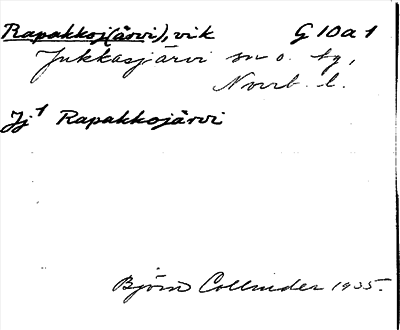 Rapakkoj(ärvi), vik G 10 a 1
Jukkasjärvi sn o. tg,
Norrb. l.
Jj 1 Rapakkojärvi
Björn Collinder 1935.